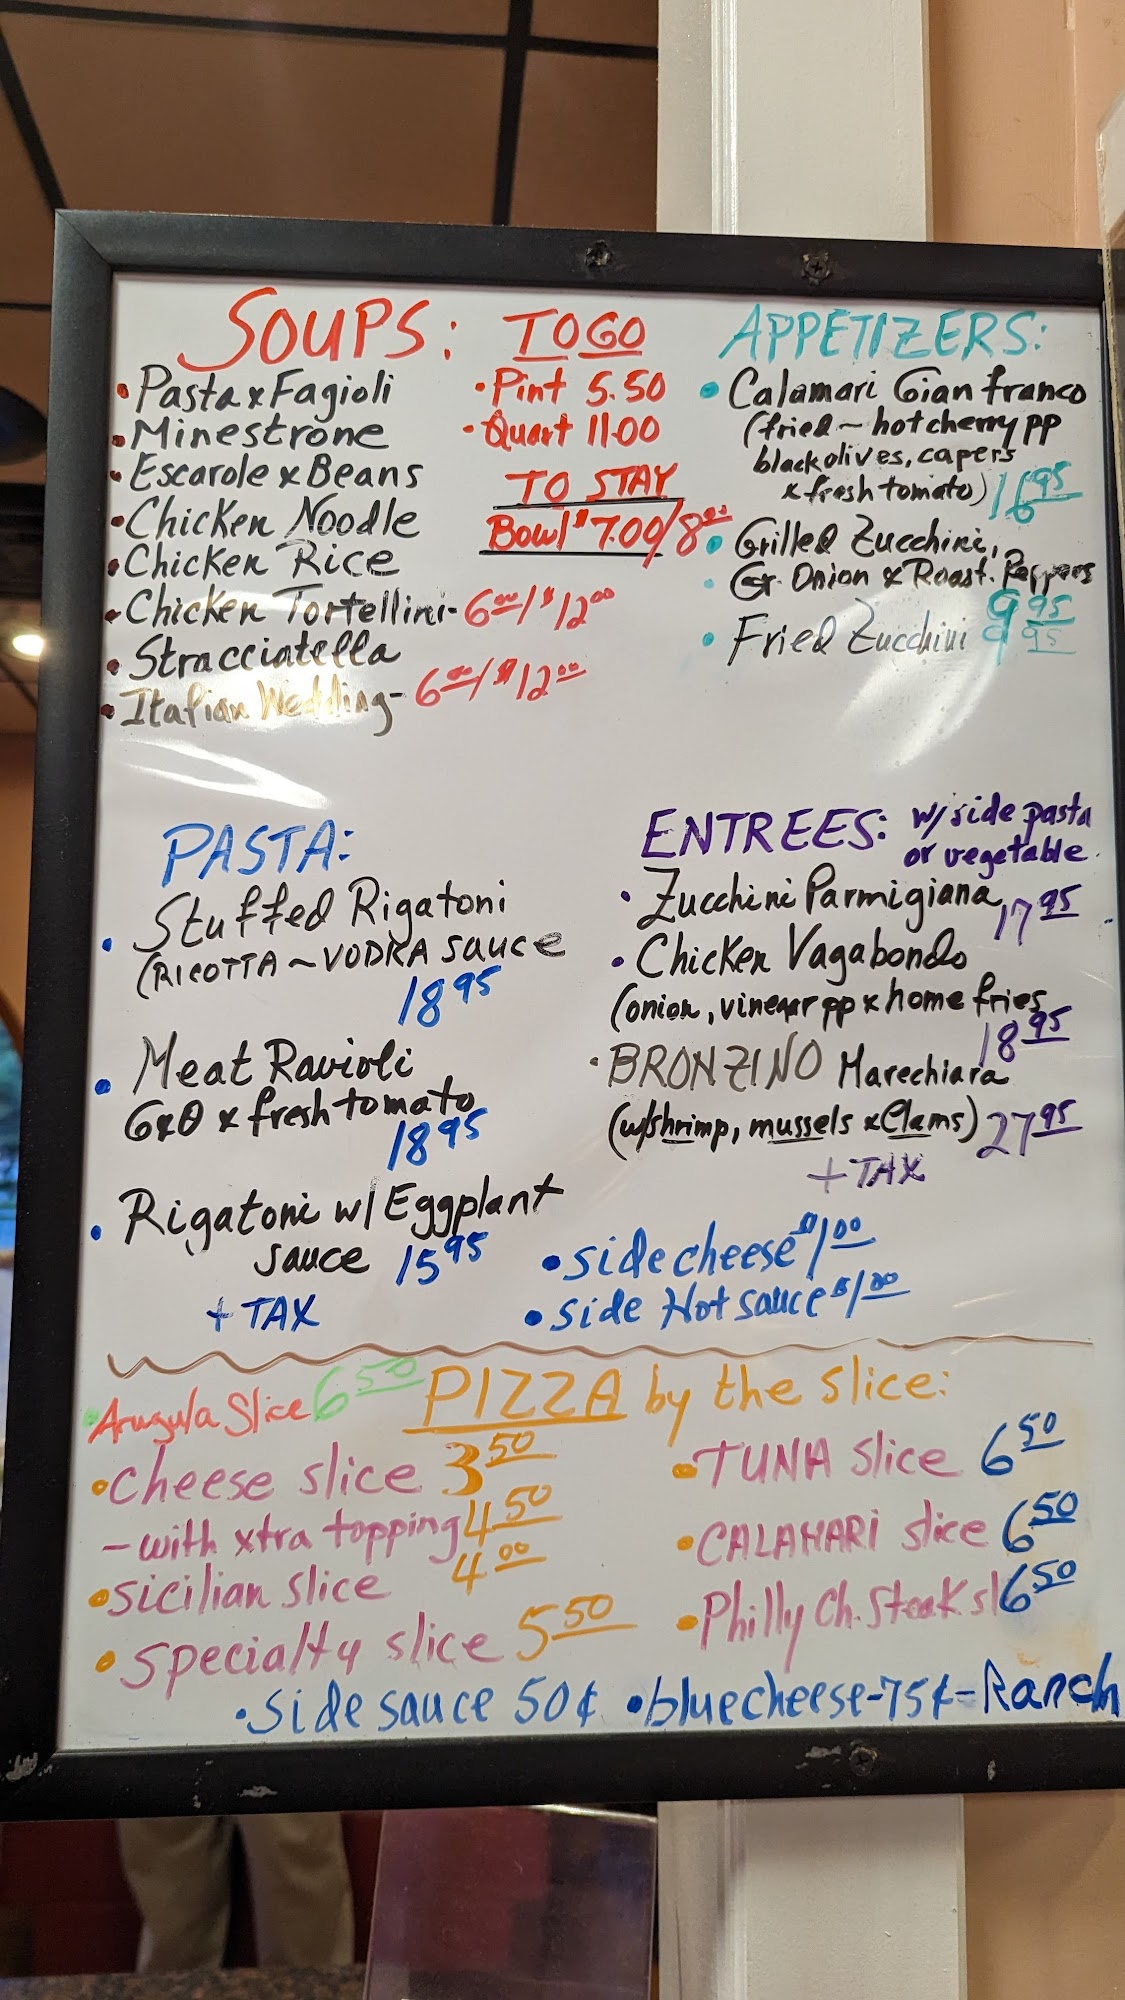 SOUPS:
• Pasta x Fagioli
• Minestrone
• Escarole x Beans
• Chicken Noodle
• Chicken Rice
• Chicken Tortellini - 6.00/$12.00
• Stracciatella
• Italian Wedding - 6.00/$12.00
TOGO
• Pint 5.50
• Quart 11.00
TO STAY
Bowl $7.00/8.00
APPETIZERS:
• Calamari Gian franco
(fried ~ hot cherry pp
black olives, capers
x fresh tomato) 16.95
• Grilled Zucchini,
• G. Onion x Roast. Peppers
9.95
• Fried Zucchini 9.95
PASTA:
• Stuffed Rigatoni
(RICOTTA ~ VODKA sauce
18.95
• Meat Ravioli
GxO x fresh tomato
18.95
• Rigatoni w/ Eggplant
sauce 15.95
+ TAX
ENTREES: w/side pasta
or vegetable
• Zucchini Parmigiana 17.95
• Chicken Vagabondo
(onion, vinegar pp x home fries
18.95
• BRONZINO Marechiara
(w/shrimp, mussels x Clams) 27.95
+ TAX
• side cheese $1.00
• side Hot sauce $1.00
PIZZA by the slice:
• Arugula Slice 6.50
• Cheese slice 3.50
- with xtra topping 4.50
• sicilian slice 4.00
• specialty slice 5.50
• TUNA slice 6.50
• CALAMARI slice 6.50
• Philly Ch. Steak sl 6.50
• side sauce 50¢ • blue cheese - 75¢ - Ranch